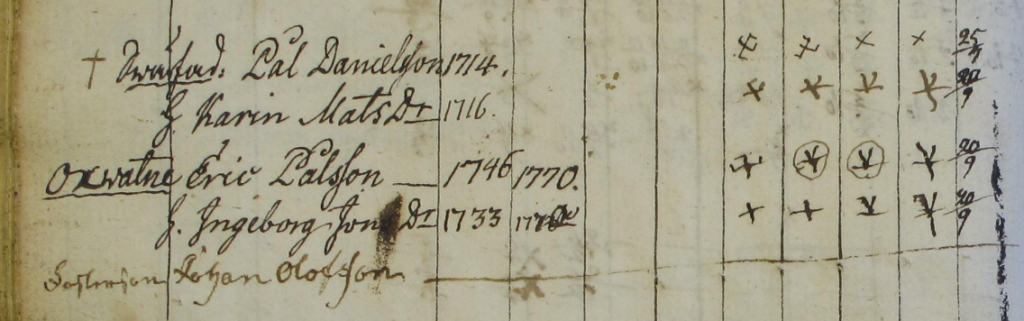 † Swärfad. Pål Danielsson 1714. 25/3
H Karin Mats Dr 1716. 20/9
Oxwatne Eric Pålsson — 1746 1770. 20/9
H. Ingeborg Jons Dr 1733 20/9
Fosterson Johan Olofsson